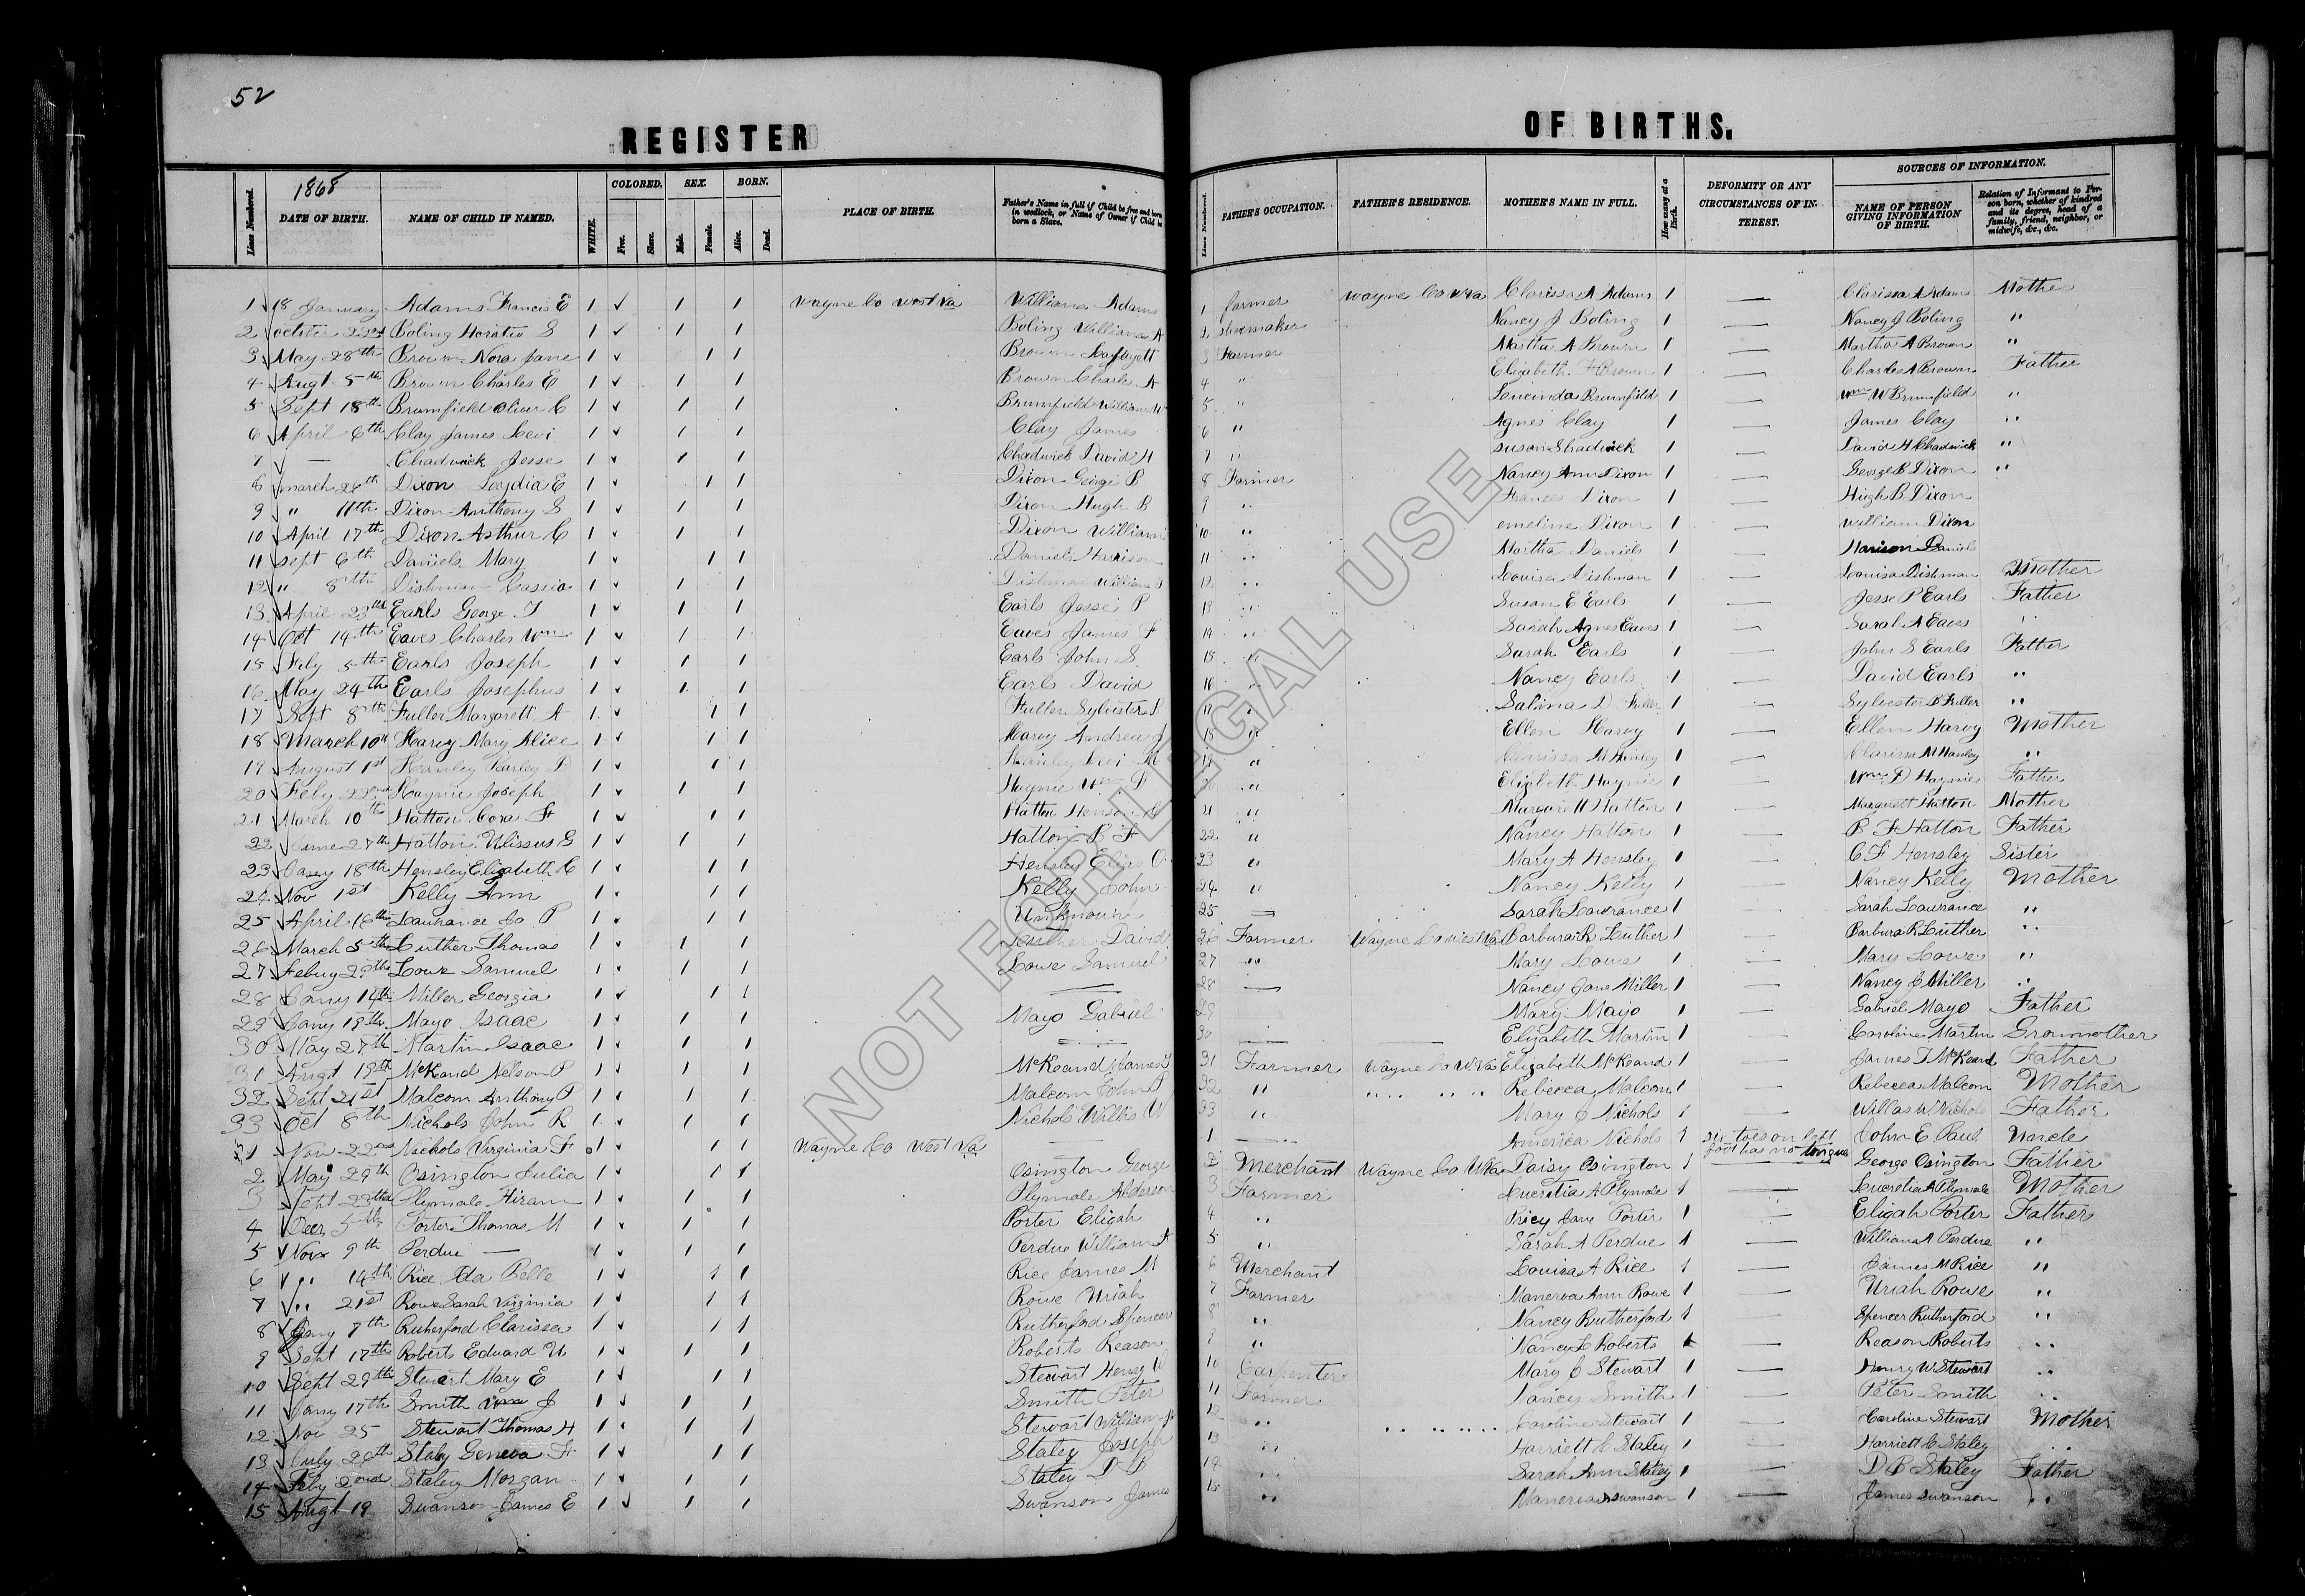 52
REGISTER OF BIRTHS.
Lines Numbered. 1868 DATE OF BIRTH. NAME OF CHILD IF NAMED. WHITE. COLORED. Free. Slave. SEX. Male. Female. BORN. Alive. Dead. PLACE OF BIRTH. Father's Name in full if Child be free and born in wedlock, or Name of Owner if Child be born a Slave. Lines Numbered. FATHER'S OCCUPATION. FATHER'S RESIDENCE. MOTHER'S NAME IN FULL. How many at a Birth. DEFORMITY OR ANY CIRCUMSTANCES OF INTEREST. SOURCES OF INFORMATION. NAME OF PERSON GIVING INFORMATION OF BIRTH. Relation of Informant to Person born, whether of kindred and its degree, head of a family, friend, neighbor, or midwife, &c., &c.
1 18 January Adams Francis E 1 ✓ 1 1 Wayne Co West Va William Adams 1 farmer Wayne Co W Va Clarissa A Adams 1 — Clarissa A Adams Mother
2 octber 22nd Boling Horatio S 1 ✓ 1 1 Boling William A 2 shoemaker Nancy J Boling 1 — Nancy J Boling "
3 May 28th Brown Nora Jane 1 ✓ 1 1 Brown Lafayett 3 Farmer Martha A Brown 1 — Martha A Brown "
4 Augt 5th Brown Charles E 1 ✓ 1 1 Brown Charls A 4 " Elizabeth Brown 1 — Charles A Brown Father
5 Sept 18th Brumfield Oliver C 1 ✓ 1 1 Brumfield William W 5 " Lucinda Brumfield 1 — Wm W Brumfield "
6 April 6th Clay James Levi 1 ✓ 1 1 Clay James 6 " Agnes Clay 1 — James Clay "
7 — Chadwick Jesse 1 ✓ 1 1 Chadwick David H 7 " Susan Shadwick 1 — David H Chadwick "
8 march 26th Dixon Loydia E 1 ✓ 1 1 Dixon George B 8 Farmer Nancy Ann Dixon 1 — George B Dixon "
9 " 11th Dixon Anthony S 1 ✓ 1 1 Dixon Hugh B 9 " Frances Dixon 1 — Hugh B Dixon
10 April 17th Dixon Arthur C 1 ✓ 1 1 Dixon William 10 " emeline Dixon 1 — William Dixon
11 Sept 6th Daniels Mary 1 ✓ 1 1 Daniels Harrison 11 " Martha Daniels 1 — Harison Daniels
12 " 8th Dishman Cassia 1 ✓ 1 1 Dishman William 12 " Louisa Dishman 1 — Louisa Dishman Mother
13 April 23th Earls George T 1 ✓ 1 1 Earls Jesse P 13 " Susan E Earls 1 — Jesse P Earls Father
14 Oct 14th Eaves Charles Wm 1 ✓ 1 1 Eaves James F 14 " Sarah Agnes Eaves 1 — Sarah A Eaves "
15 Feby 5th Earls Joseph 1 ✓ 1 1 Earls John S. 15 " Sarah Earls 1 — John S Earls Father
16 May 24th Earls Josephus 1 ✓ 1 1 Earls David 16 " Nancy Earls 1 — David Earls "
17 Sept 8th Fuller Margarett A 1 ✓ 1 1 Fuller Sylvester 17 " Salina D Fuller 1 — Sylvester Fuller "
18 March 10th Harvy Mary Alice 1 ✓ 1 1 Harvy Andrew J 18 " Ellen Harvy 1 — Ellen Harvy Mother
19 August 1st Hanley 1 ✓ 1 1 Hanley Levi M 19 " Clarissa M Hanley 1 — Clarissa M Hanley "
20 Feby 22nd Haynie Joseph 1 ✓ 1 1 Haynie Wm D 20 " Elizabeth Haynie 1 — Wm D Haynie Father
21 March 10th Hatton Cora F 1 ✓ 1 1 Hatton Henson 21 " Margarett Hatton 1 — Margarett Hatton Mother
22 June 27th Hatton Ulissus G 1 ✓ 1 1 Hatton B F 22 " Nancy Hatton 1 — B F Hatton Father
23 Jany 18th Hensley Elizabeth C 1 ✓ 1 1 Hensley Elias O 23 " Mary A Hensley 1 — C F Hensley Sister
24 Nov 1st Kelly Ann 1 ✓ 1 1 Kelly John 24 " Nancy Kelly 1 — Nancy Kelly Mother
25 April 16th Lawrance Jo P 1 ✓ 1 1 Unknown 25 = Sarah Lawrance 1 — Sarah Lawrance "
26 March 5th Luther Thomas 1 ✓ 1 1 Luther David 26 Farmer Wayne Co West Va Barbura R Luther 1 — Barbura R Luther "
27 Febuy 29th Lowe Samuel 1 ✓ 1 1 Lowe Samuel 27 " Mary Lowe 1 — Mary Lowe "
28 Jany 14th Miller Georgia 1 ✓ 1 1 — 28 — Nancy Jane Miller 1 — Nancy J Miller "
29 Jany 19th Mayo Isaac 1 ✓ 1 1 Mayo Gabriel 29 Mary Mayo 1 — Gabriel Mayo Father
30 May 27th Martin Isaac 1 ✓ 1 1 — 30 — — Elizabeth Martin 1 — Caroline Martin Granmother
31 Augt 19th McKeand Nelson P 1 ✓ 1 1 McKeand James T 31 Farmer Wayne Co W. Va Elizabeth McKeand 1 — James T McKeand Father
32 Sept 21st Malcom Anthony P 1 ✓ 1 1 Malcom John P 32 " " " " " Rebecca Malcom 1 — Rebecca Malcom Mother
33 Oct 8th Nichols John R 1 ✓ 1 1 Nichols Willis W 33 " Mary J Nichols 1 — Willas W Nichols Father
1 Nov 22nd Nichols Virginia F 1 ✓ 1 1 Wayne Co West Va — 1 — America Nichols 1 six toes on left foot has no tongue John E Paul Uncle
2 May 29th Osington Julia 1 ✓ 1 1 Osington George 2 Merchant Wayne Co W Va Daisy Osington 1 — George Osington Father
3 Sept 22nd Plymale Hiram 1 ✓ 1 1 Plymale Alderson 3 Farmer Lucretia A Plymale 1 — Lucretia A Plymale Mother
4 Decr 5th Porter Thomas M 1 ✓ 1 1 Porter Eligah 4 " Pricy Jane Porter 1 — Eligah Porter Father
5 Nov 9th Perdue — 1 ✓ 1 1 Perdue William A 5 " Sarah A Perdue 1 — William A Perdue "
6 " 14th Rice Ida Belle 1 ✓ 1 1 Rice James M 6 Merchant Louisa A Rice 1 — James M Rice "
7 " 21st Rowe Sarah Virginia 1 ✓ 1 1 Rowe Uriah 7 Farmer Manerva Ann Rowe 1 — Uriah Rowe "
8 Jany 7th Rutherford Clarissa 1 ✓ 1 1 Rutherford Spencer 8 " Nancy Rutherford 1 — Spencer Rutherford "
9 Sept 17th Roberts Edward W 1 ✓ 1 1 Roberts Reason 9 " Nancy L Roberts 1 — Reason Roberts "
10 Sept 29th Stewart Mary E 1 ✓ 1 1 Stewart Henry W 10 Carpenter Mary C Stewart 1 — Henry W Stewart "
11 Jany 17th Smith J 1 ✓ 1 1 Smith Peter 11 Farmer Nancy Smith 1 — Peter Smith "
12 Nov 25 Stewart Thomas H 1 ✓ 1 1 Stewart William 12 " " " " " Caroline Stewart 1 — Caroline Stewart Mother
13 July 26th Staley Geneva F 1 ✓ 1 1 Staley Joseph 13 " Harriett C Staley 1 — Harriett C Staley "
14 Feby 2ond Staley Morgan 1 ✓ 1 1 Staley D B 14 " Sarah Ann Staley 1 — D B Staley Father
15 Augt 19 Swanson James E 1 ✓ 1 1 Swanson James 15 " Manerva Swanson 1 — James Swanson "
NOT FOR LEGAL USE